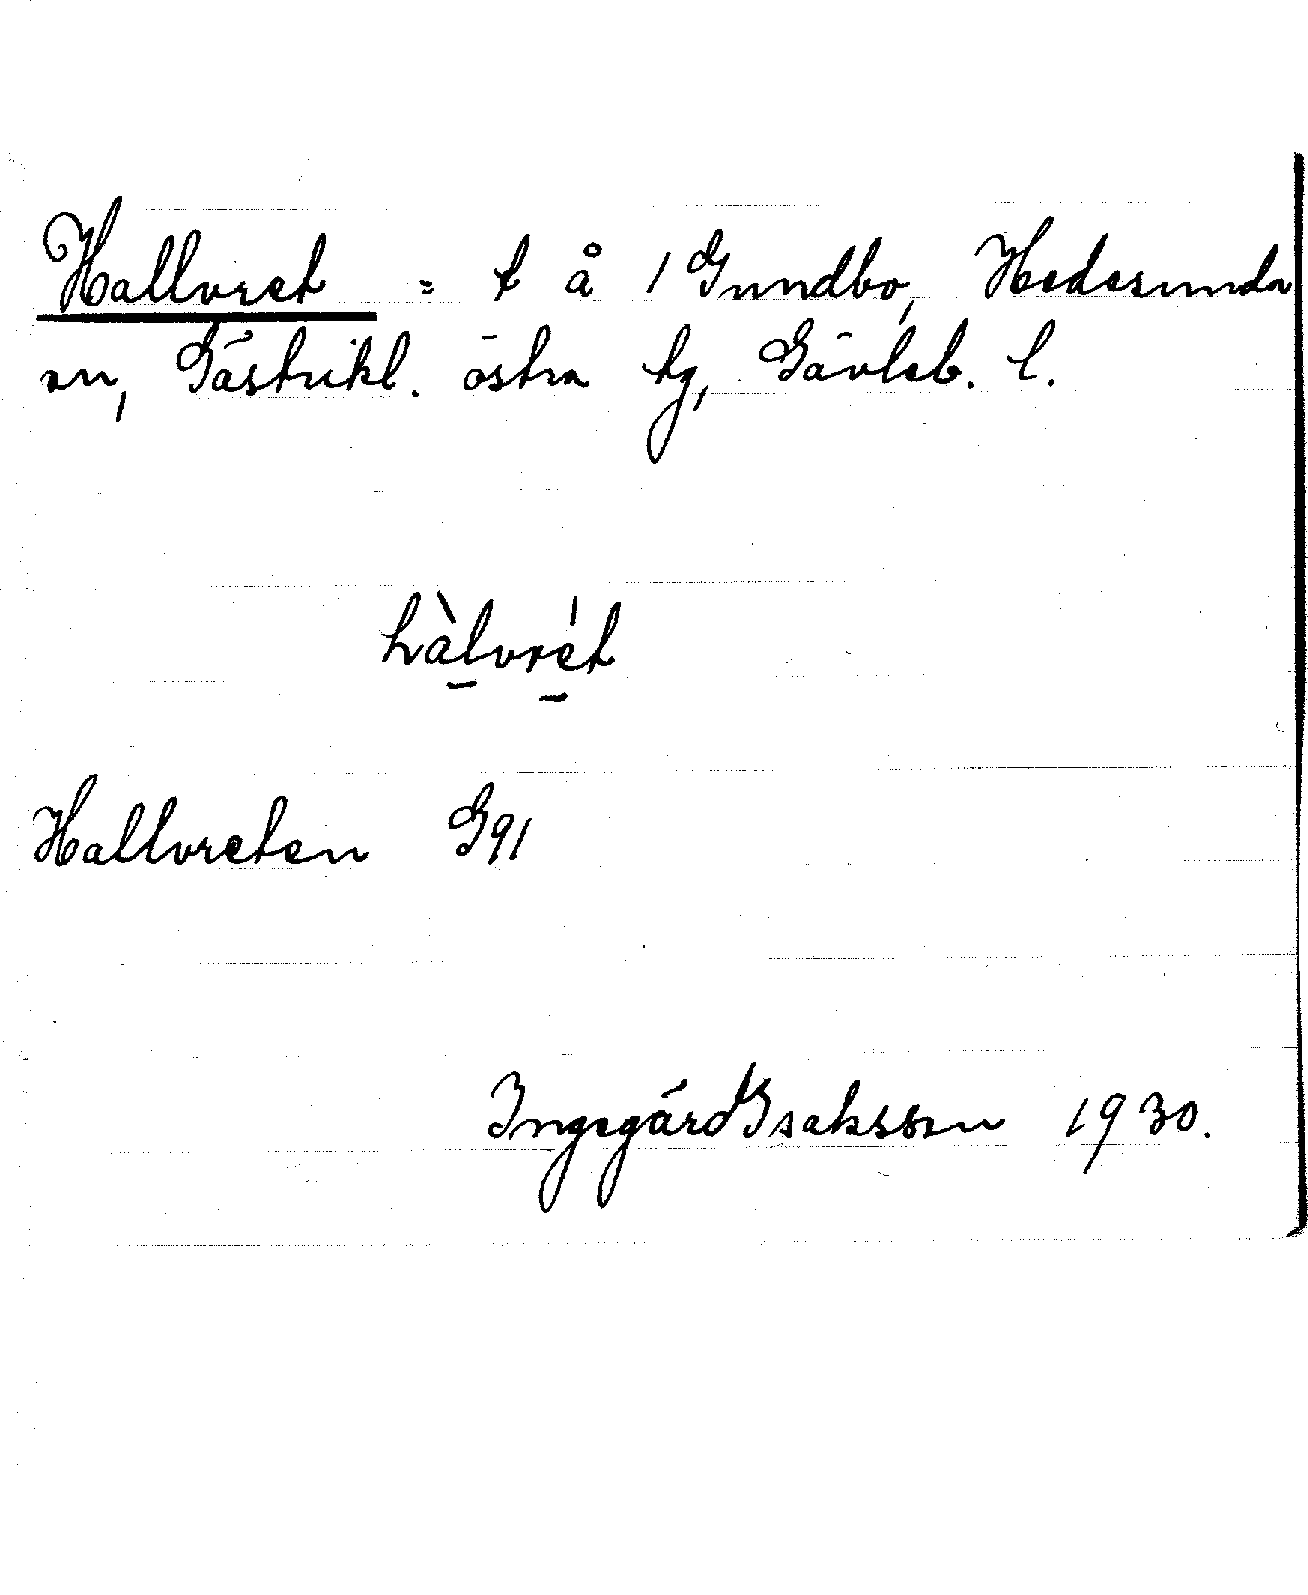 Hallvret = t å 1 Gundbo, Hedesunda
sn, Gästrikl. östra tg, Gävleb. l.
hàlvrét
Hallvreten G91
Ingegärd Isaksson 1930.